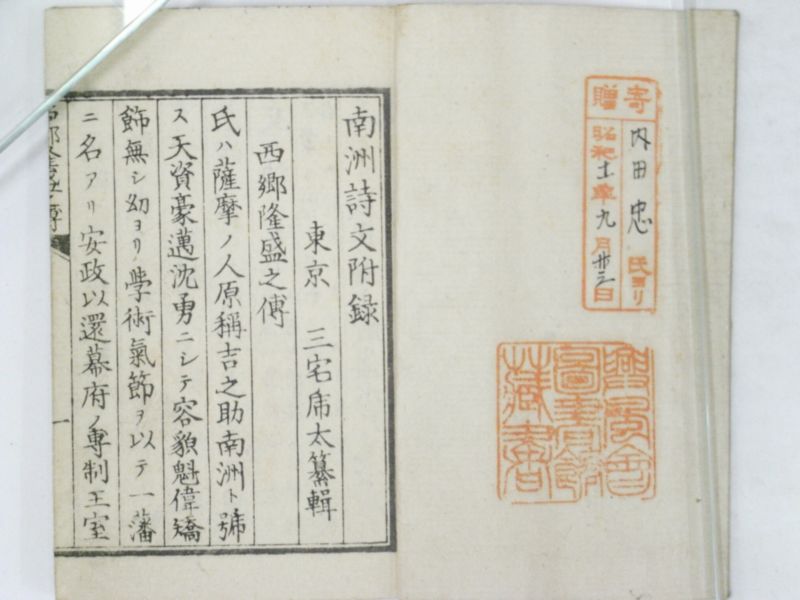 寄贈
内田忠氏ヨリ
昭和十一年九月廿三日
興風會
圖書館
藏書
南洲詩文附録
東京 三宅乕太纂輯
西郷隆盛之傳
氏ハ薩摩ノ人原稱吉之助南洲ト號
ス天資豪邁沈勇ニシテ容貌魁偉矯
飾無シ幼ヨリ學術氣節ヲ以テ一藩
ニ名アリ安政以還幕府ノ專制王室
一